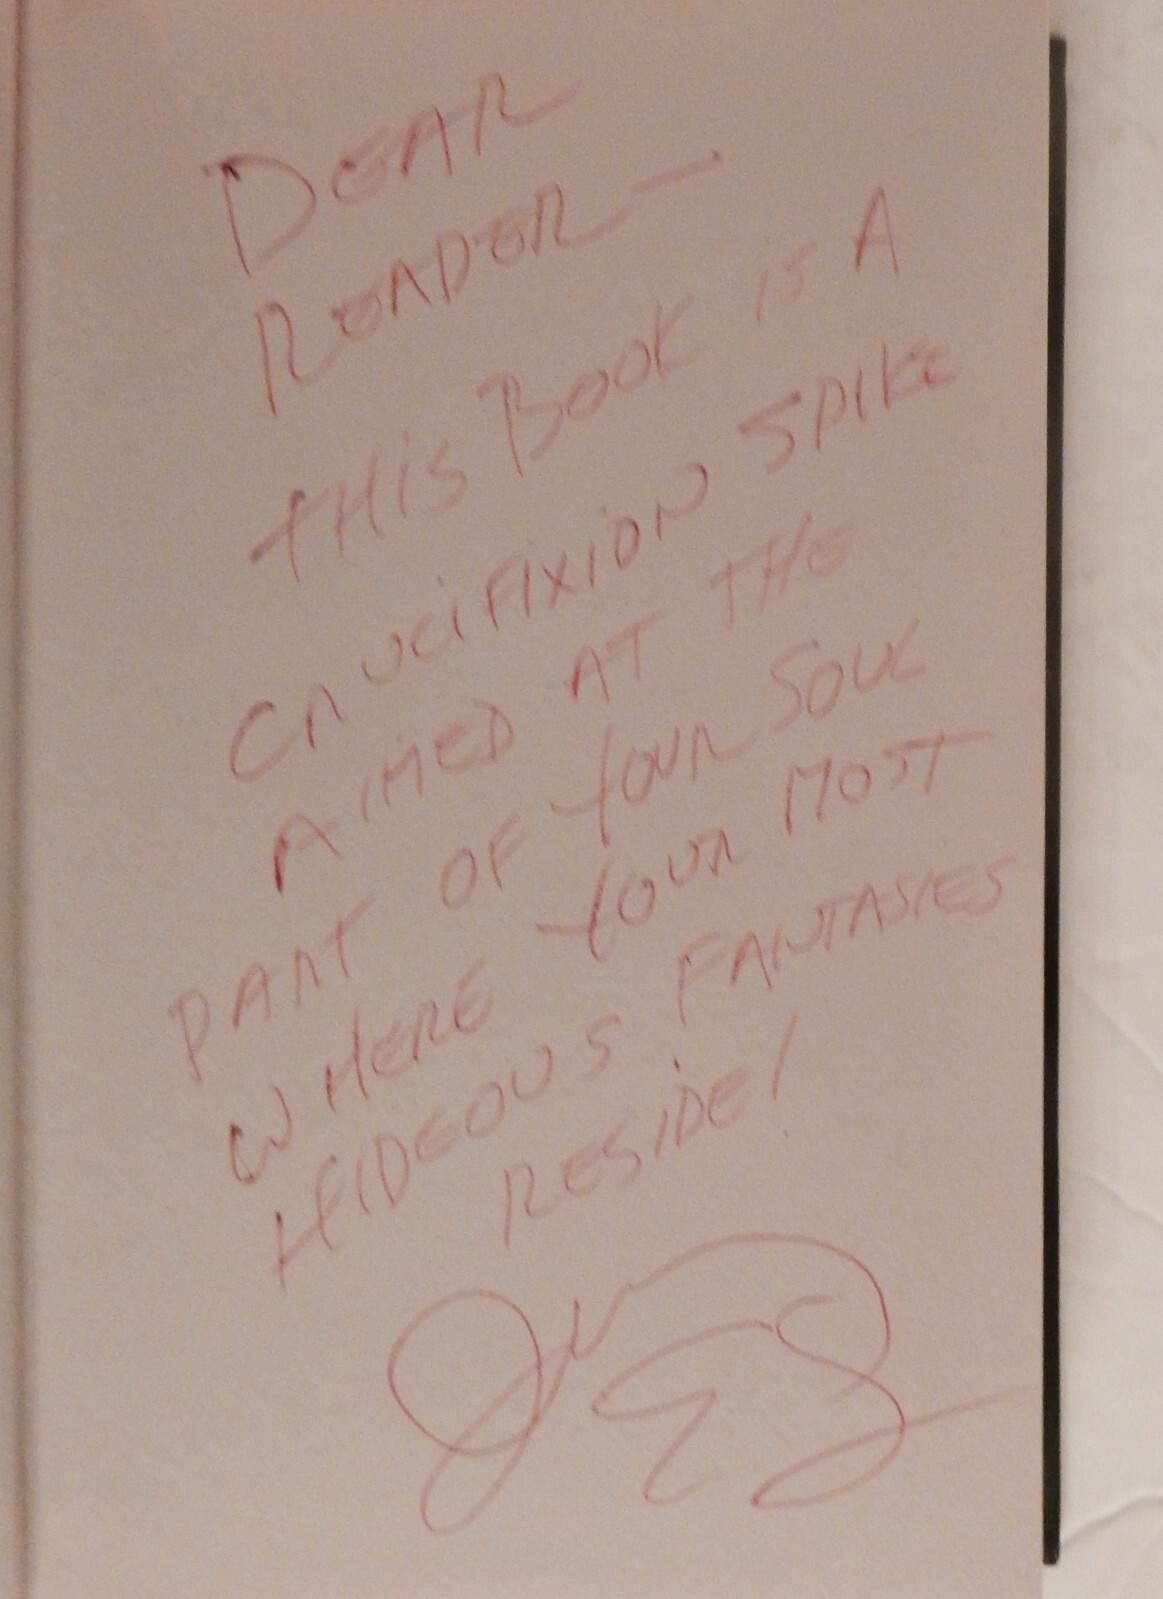 DEAR
READER—
THIS BOOK is A
CRUCIFIXION SPIKE
AIMED AT THE
PART OF YOUR SOUL
WHERE YOUR MOST
HIDEOUS FANTASIES
RESIDE!